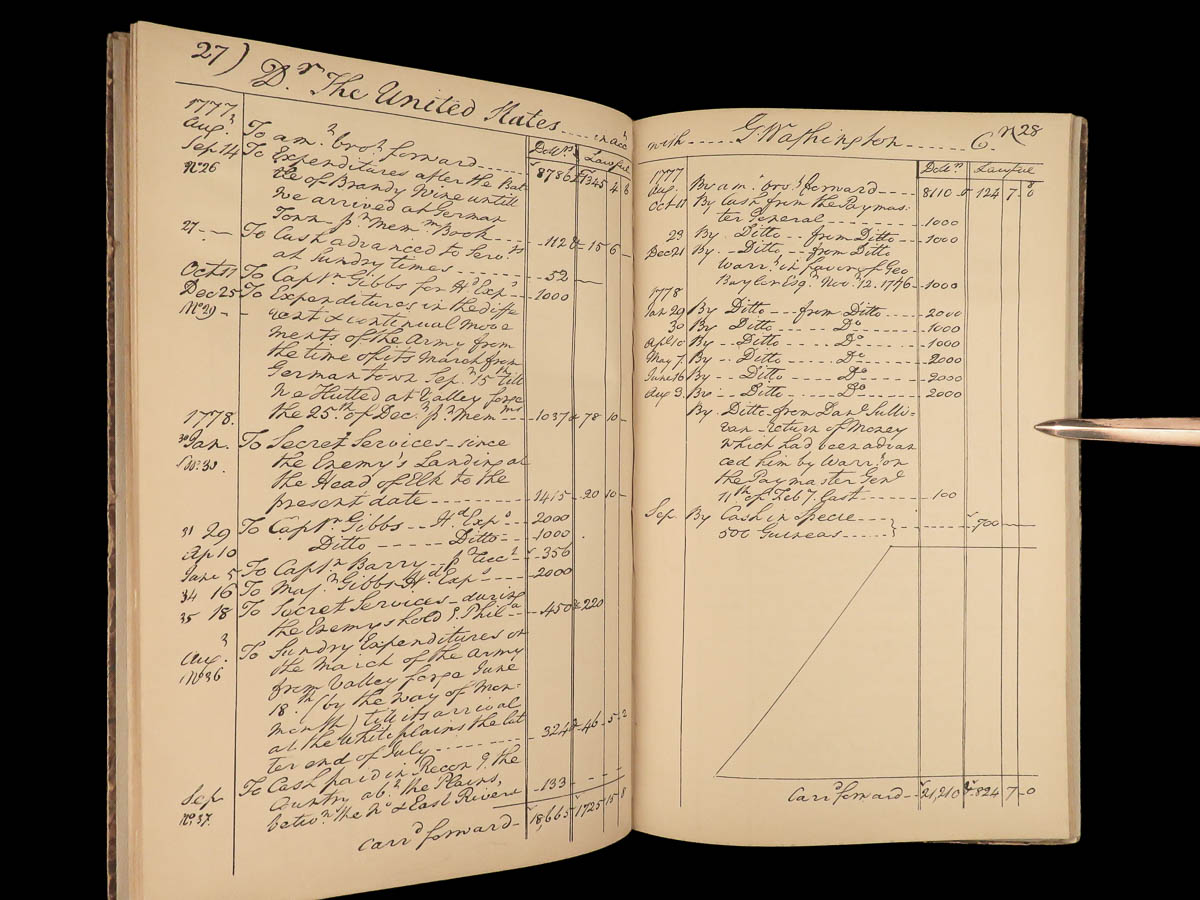 27)
Dr The United States .... in acct
Dollrs Lawful
1777
Augt To amt brot forward ---- 8786 1345 4 8
Sep 14 To Expenditures after the Bat
No 26 tle of Brandy Wine untill
we arrived at German
Town pr Memm Book --- 112 15 6 -
27 - - To Cash advanced to Servts
at Sundry times ------ 52 -
Oct 11 To Captn Gibbs for Hd Exps - 1000
Dec 25 To Expenditures in the diffe
No 29 - - rent & continual move
ments of the Army from
the time of its March from
German town Sepr 15th till
we Hutted at Valley forge
the 25th of Decr pr Memms - 1037 78 10 -
1778.
30 Jan. To Secret Services - since
the Enemy's Landing at
the Head of Elk to the
present date ------ 1415 - 20 10 -
31 29 To Captn Gibbs -- Hd Exps - 2000
Ap 10 Ditto ------ Ditto -- 1000
June 5 To Captn Barry - pr Acct - 356
34 16 To Majr Gibbs Hd Exps --- 2000
35 18 To Secret Services - during
the Enemys hold g Phila - 450 220
Augt To Sundry Expenditures on
No 36 the March of the Army
from Valley forge June
18th (by the way of Mon-
mouth) till its arrival
at the White plains the lat
ter end of July ------- 324 46 5 2
Sep To Cash paid in Recong the
No 37. Country abt the Plains,
betwn the No & East Rivers - 133 - - -
Carrd forward - 18,665 1725 15 8
28
with ---- G. Washington ------ Cr
Dollrs Lawful
1777
Aug. By amt brot forward --- 8110 124 7 8
Oct 11 By Cash from the Paymas-
ter General -------- 1000
23 By Ditto -- from Ditto --- 1000
Dec 21 By - Ditto -- from Ditto
Warrt in favor of Geo
Baylor Esqr Novr 12. 1776 - 1000
1778
Jan 29 By Ditto --- from Ditto ---- 2000
30 By Ditto ------ Do ------ 1000
Apl 10 By - Ditto ------ Do ------ 1000
May 7. By -- Ditto ------ Do ------ 2000
June 16 By -- Ditto ------ Do ------ 2000
Aug 3. By -- Ditto ------ Do ------ 2000
By. Ditto from Danl Sulli-
van - return of Money
which had been advan
ced him by Warrt on
the Paymaster Genl
11th of Feby last ------- 100
Sep By Cash in Specie ----
500 Guineas ----- 700 -
Carrd forward -- 21,210 824 7 0